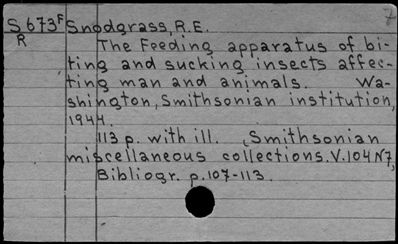 S673F Snodgrass, R.E.
R
The Feeding apparatus of bi-
ting and sucking insects affec-
ting man and animals. Wa-
shington, Smithsonian institution,
1944.
113 p. with ill. (Smithsonian
miscellaneous collections. V.104 N7,
Bibliogr. p.107-113.